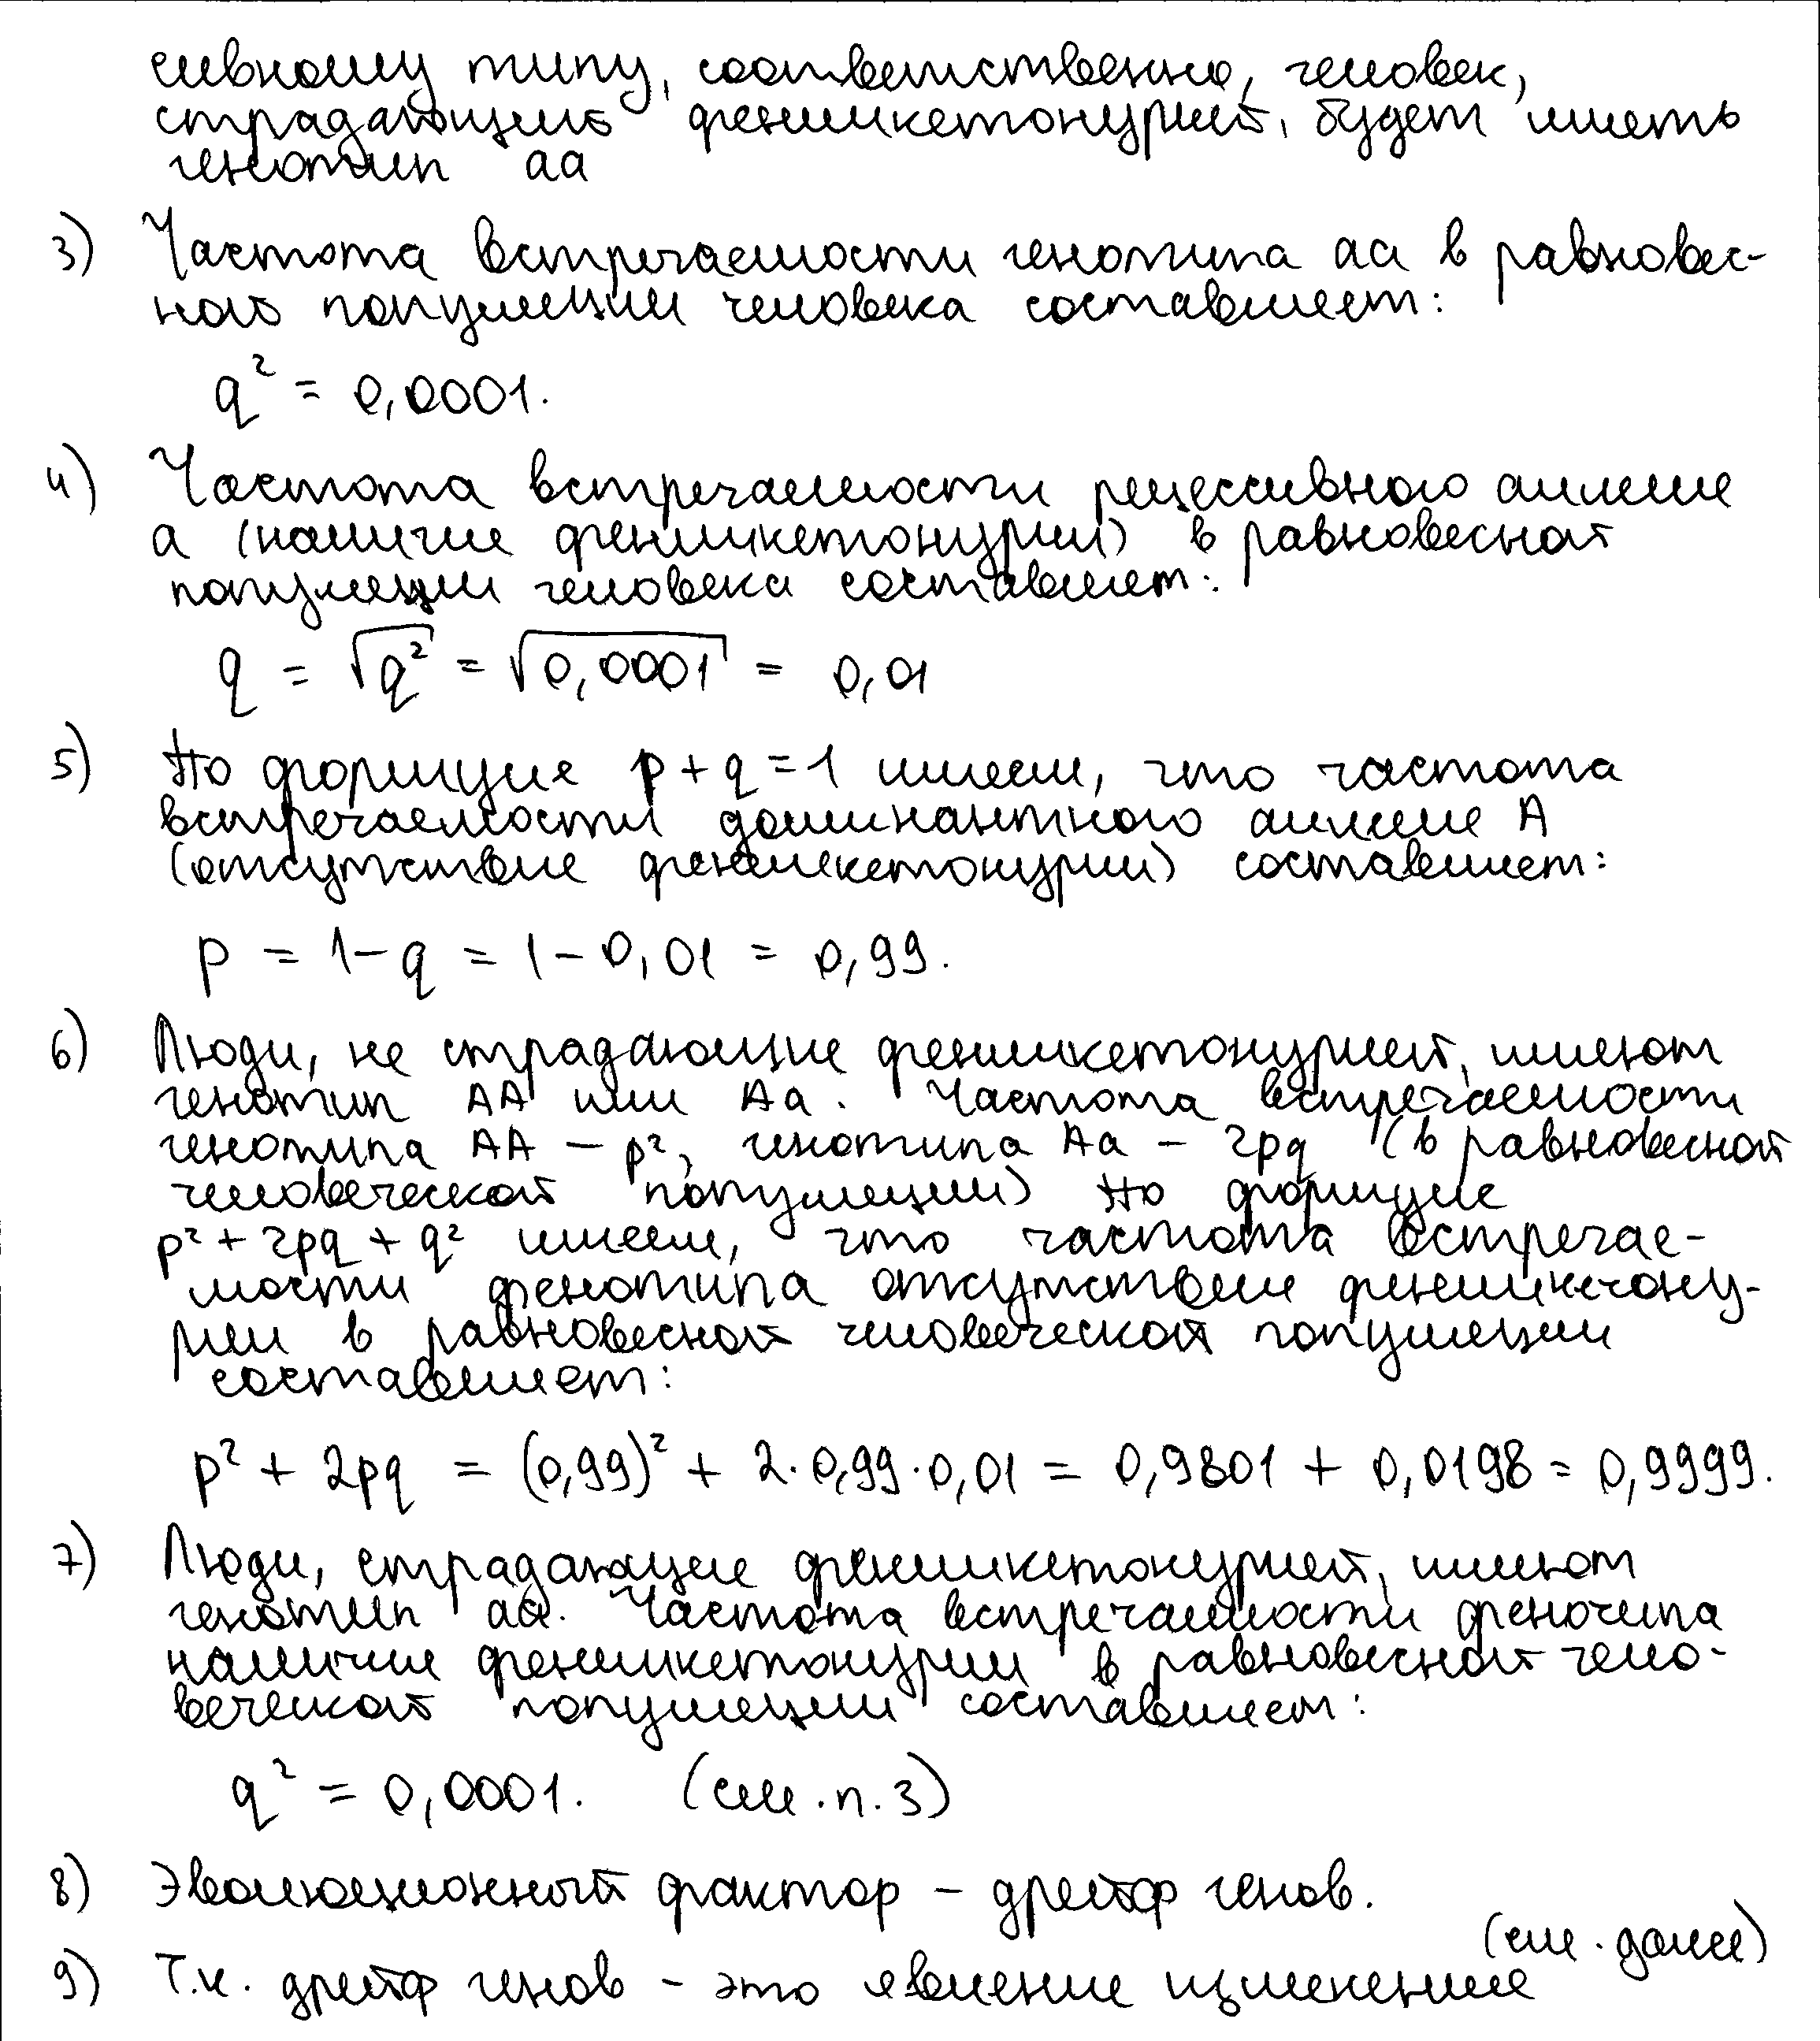 сивному типу, соответственно, человек,
страдающий фенилкетонурией, будет иметь
генотип аа
3) Частота встречаемости генотипа аа в равновес-
ной популяции человека составляет:
q² = 0,0001.
4) Частота встречаемости рецессивного аллеля
а (наличие фенилкетонурии) в равновесной
популяции человека составляет:
q = √q² = √0,0001 = 0,01
5) По формуле p + q = 1 имеем, что частота
встречаемости доминантного аллеля А
(отсутствие фенилкетонурии) составляет:
p = 1 - q = 1 - 0,01 = 0,99.
6) Люди, не страдающие фенилкетонурией, имеют
генотип АА или Аа. Частота встречаемости
генотипа АА - p², генотипа Аа - 2pq (в равновесной
человеческой популяции) По формуле
p² + 2pq + q² имеем, что частота встречае-
мости фенотипа отсутствия фенилкетону-
рии в равновесной человеческой популяции
составляет:
p² + 2pq = (0,99)² + 2·0,99·0,01 = 0,9801 + 0,0198 = 0,9999.
7) Люди, страдающие фенилкетонурией, имеют
генотип аа. Частота встречаемости фенотипа
наличия фенилкетонурии в равновесной чело-
веческой популяции составляет:
q² = 0,0001. (см. п. 3)
8) Эволюционный фактор - дрейф генов.
(см. далее)
9) Т.к. дрейф генов - это явление изменения